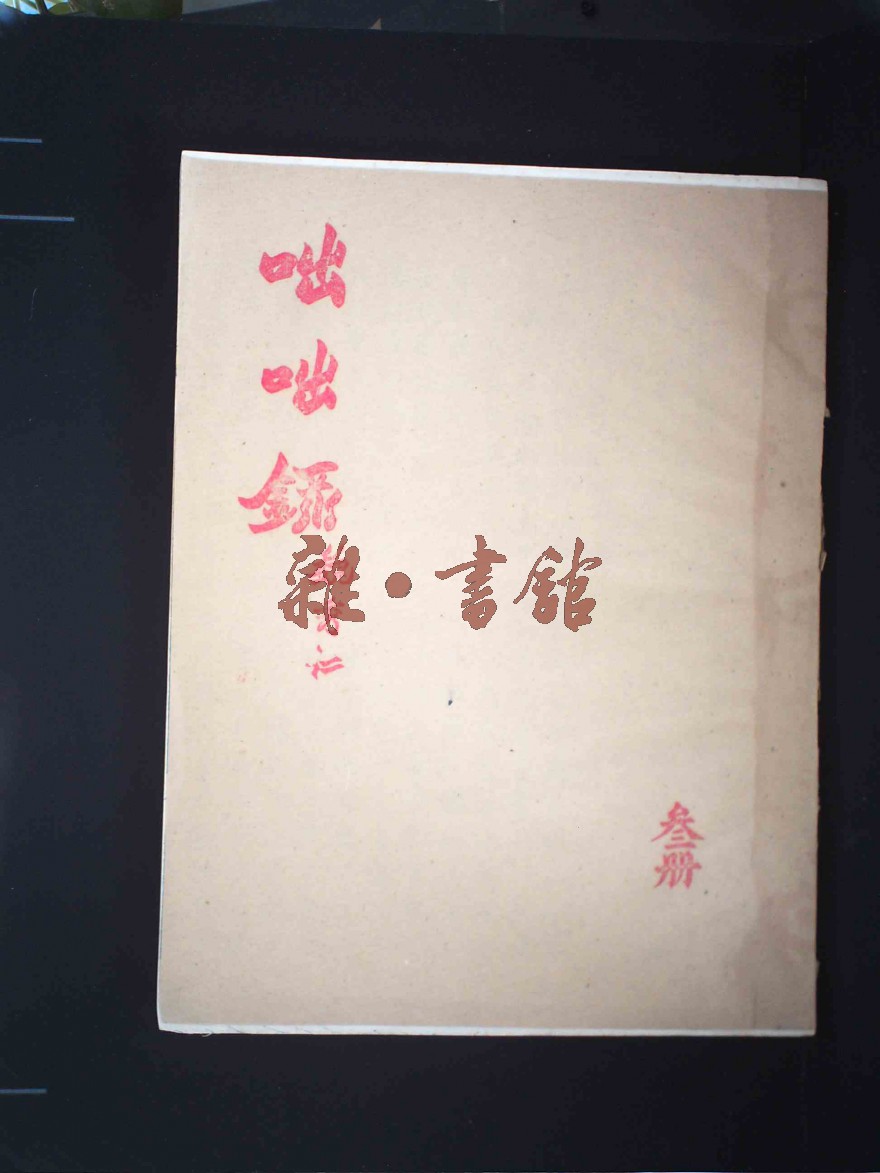 咄咄錄
雜·書館
叁册